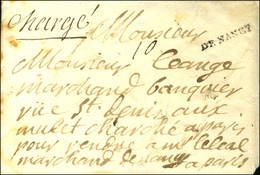 chargé
A Monsieur
DE NANCY
10
Monsieur Leange
marchand banquier
rüe St Denis aux
mulet charché a paris
pour rendre a mr Leleal
marchand de nancy a paris